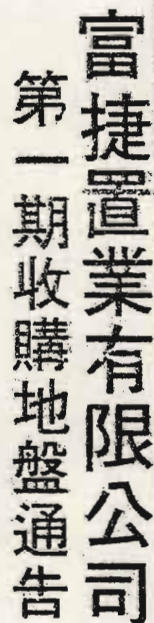 富捷置業有限公司
第一期收購地盤通告